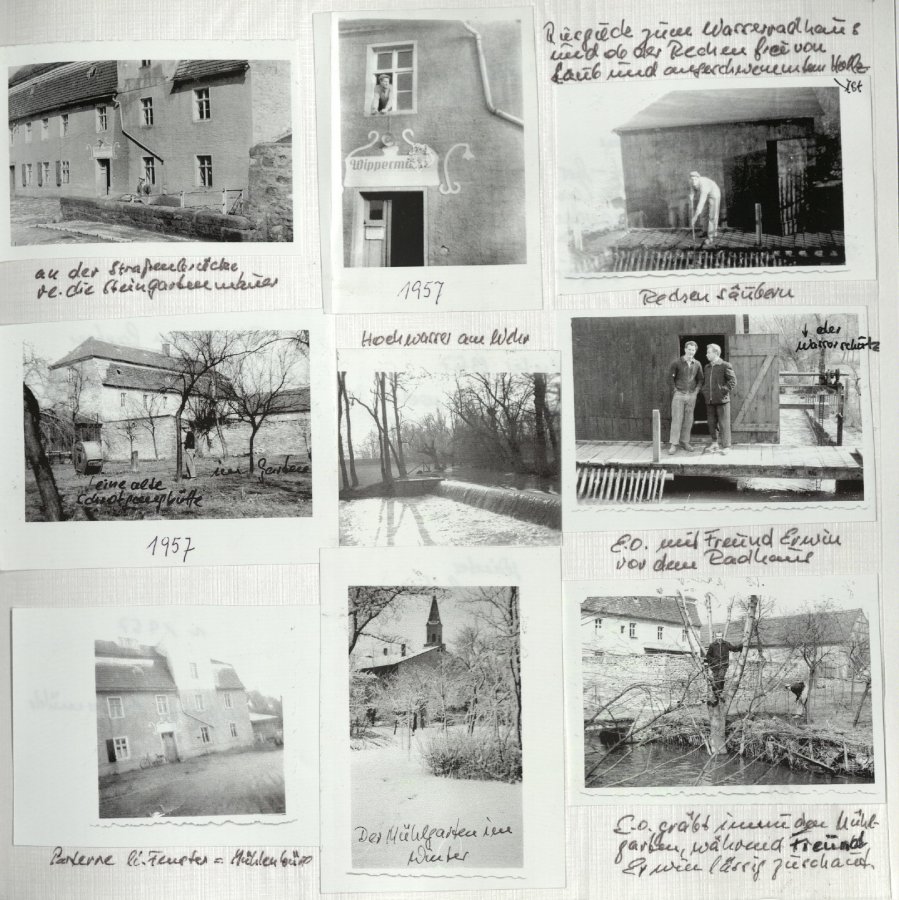 zum Wasserradhaus
und ob der Rechen frei von
Laub und angeschwemmtem Holz
ist
Wippermühle
an der Straßenbrücke
re. die Steingartenmauer
1957
Rechen säubern
Hochwasser am Wehr
↓ der
Wasserschütz
unser Garten
eine alte
1957
E.O. mit Freund Erwin
vor dem Radhaus
Parterre li. Fenster = Mühlenbüro
Der Mühlgarten im
Winter
E.O. gräbt immun den Mühl-
garten, während Freund
Erwin lässig zuschaut.